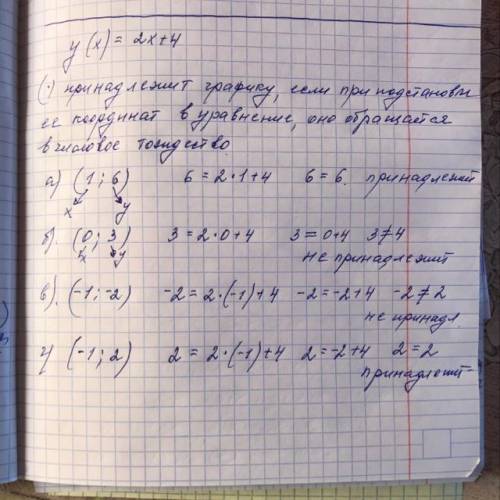 y(x) = 2x+4
(·) принадлежит графику, если при подстановк
ее координат в уравнение, оно обращается
в числовое тождество.
а) (1; 6) 6 = 2·1+4 6 = 6. принадлежит
x y
б). (0; 3) 3 = 2·0+4 3 = 0+4 3≠4
x y не принадлежит
в). (-1; -2) -2 = 2·(-1)+4 -2 = -2+4 -2≠2
не принадл.
г) (-1; 2) 2 = 2·(-1)+4 2 = -2+4 2 = 2
принадлежит